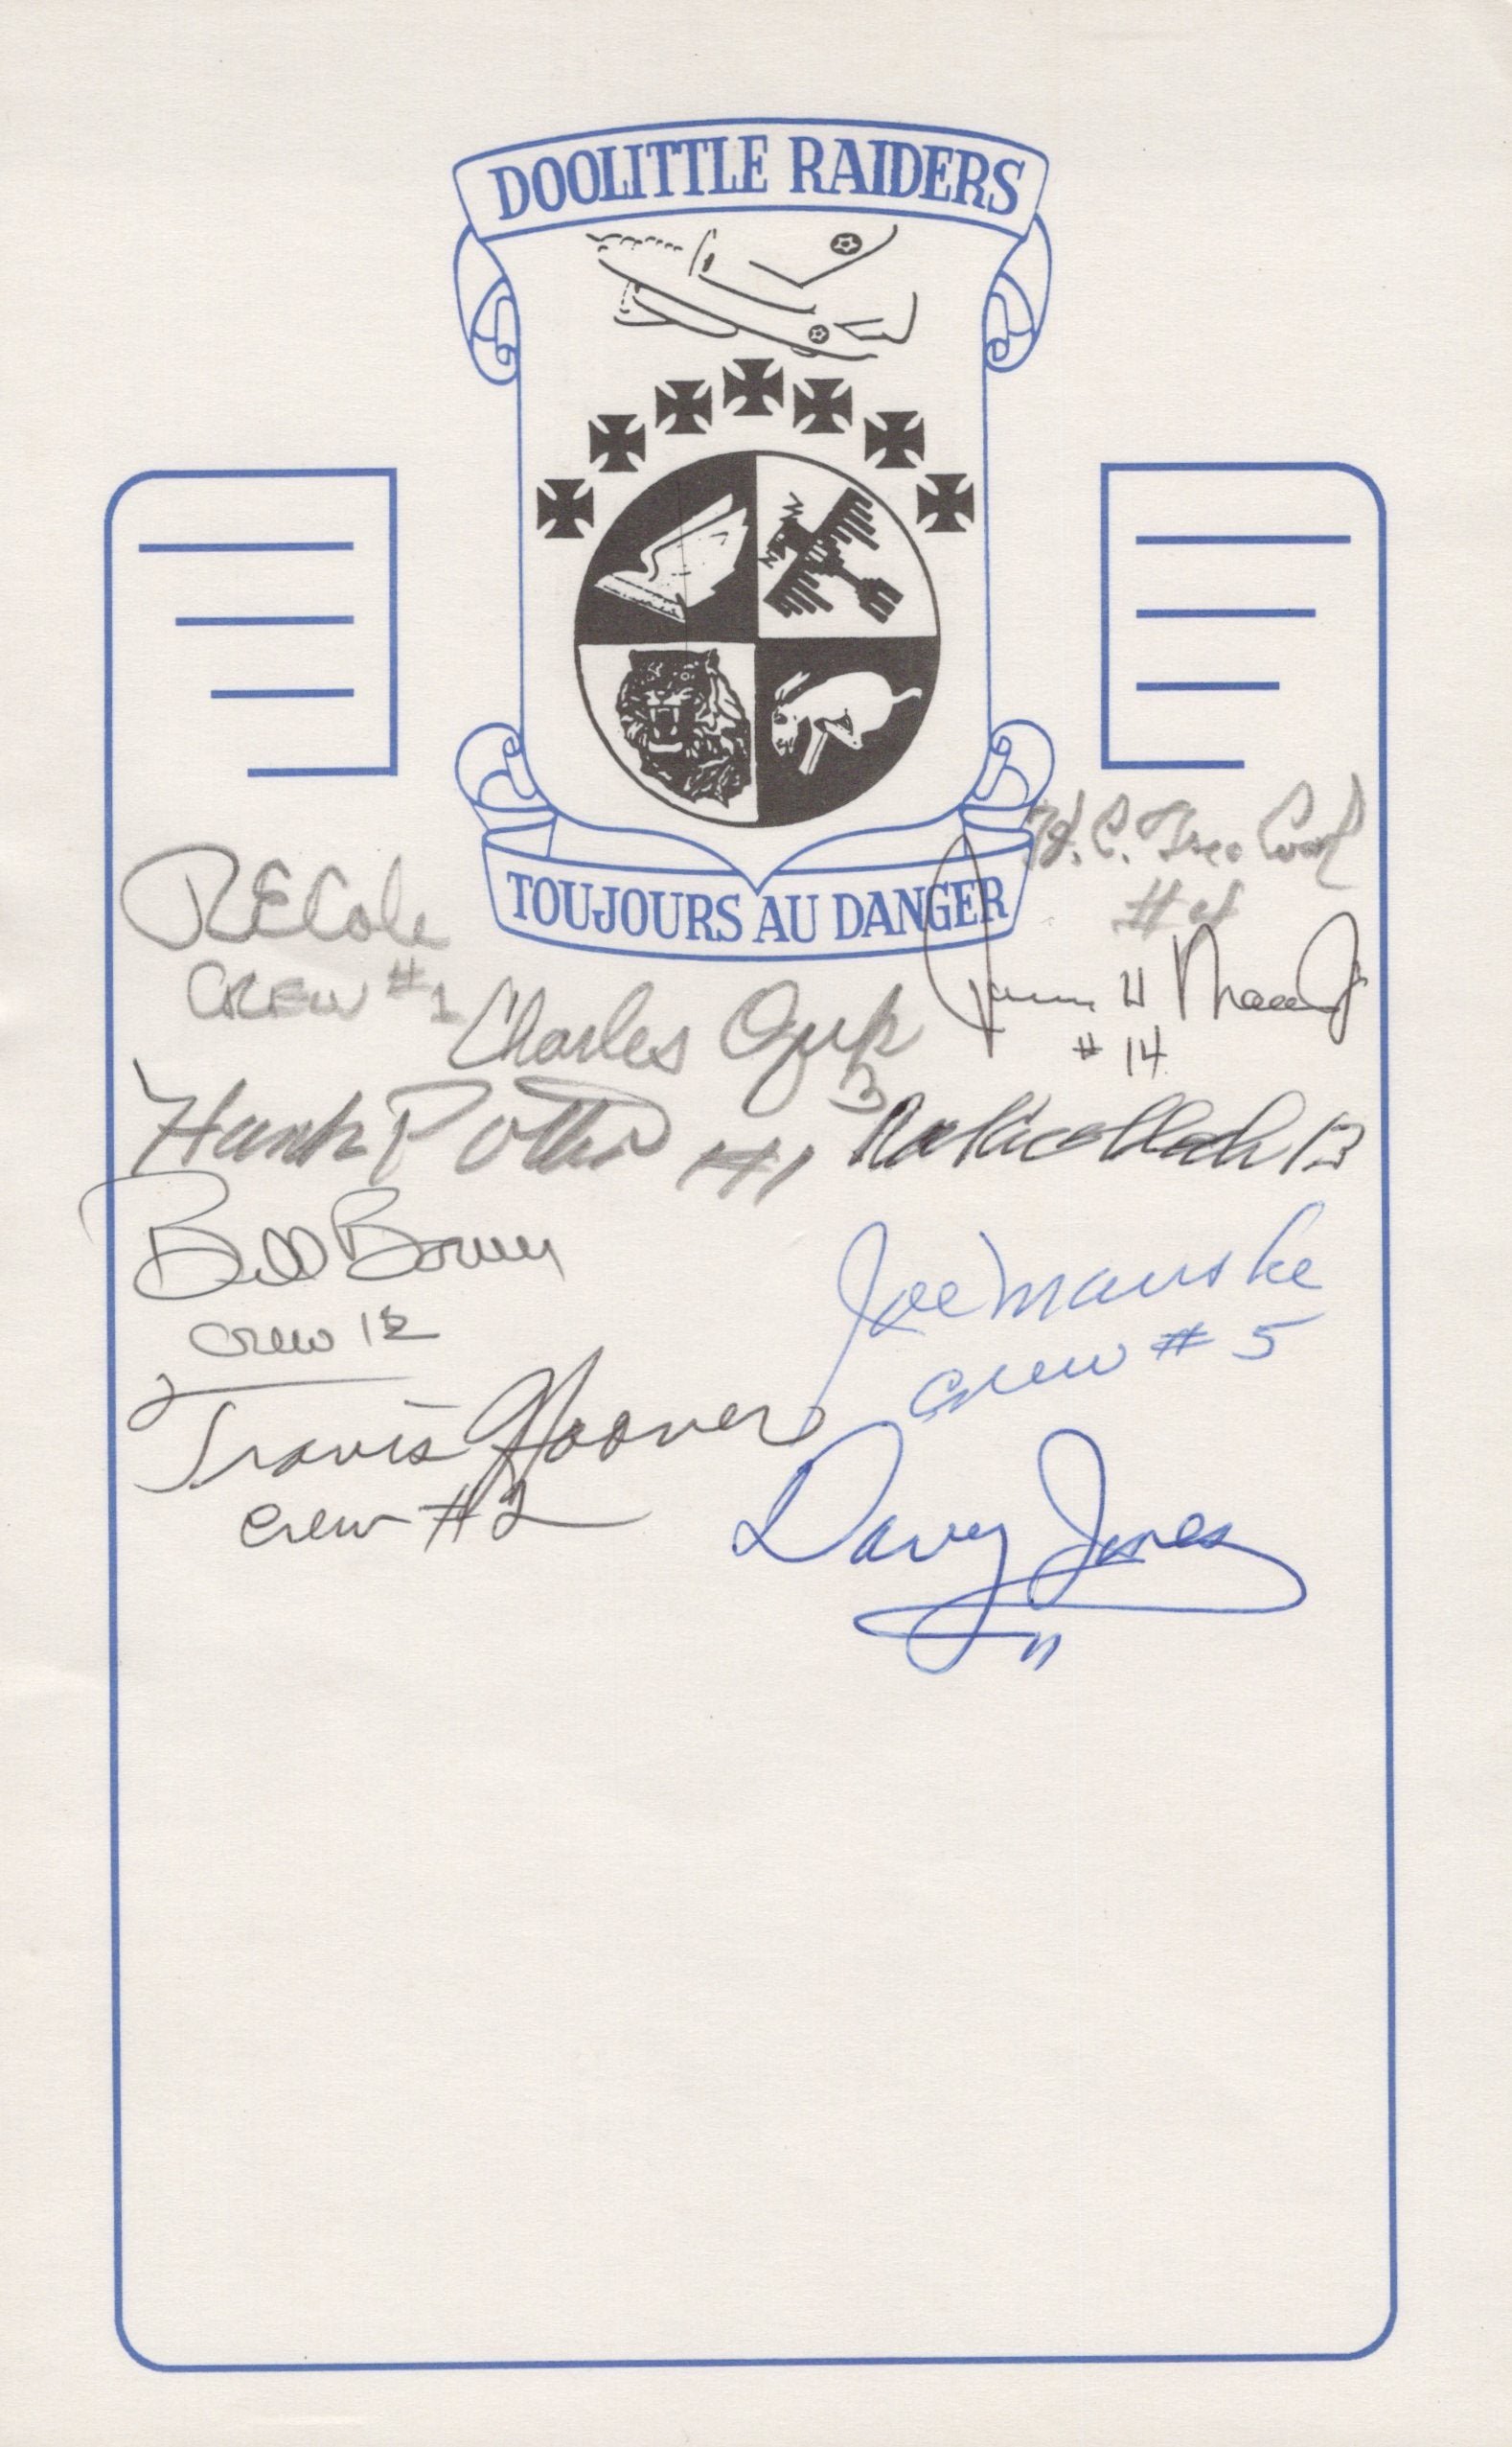 DOOLITTLE RAIDERS
TOUJOURS AU DANGER
H. C.
#4
RECole
CREW #1
James H Macia Jr
#14
Charles Ozuk
3
Hank Potter #1
Knobloch 13
Bill Bower
crew 12
Joe Manske
crew #5
Travis Hoover
crew #2
Davy Jones